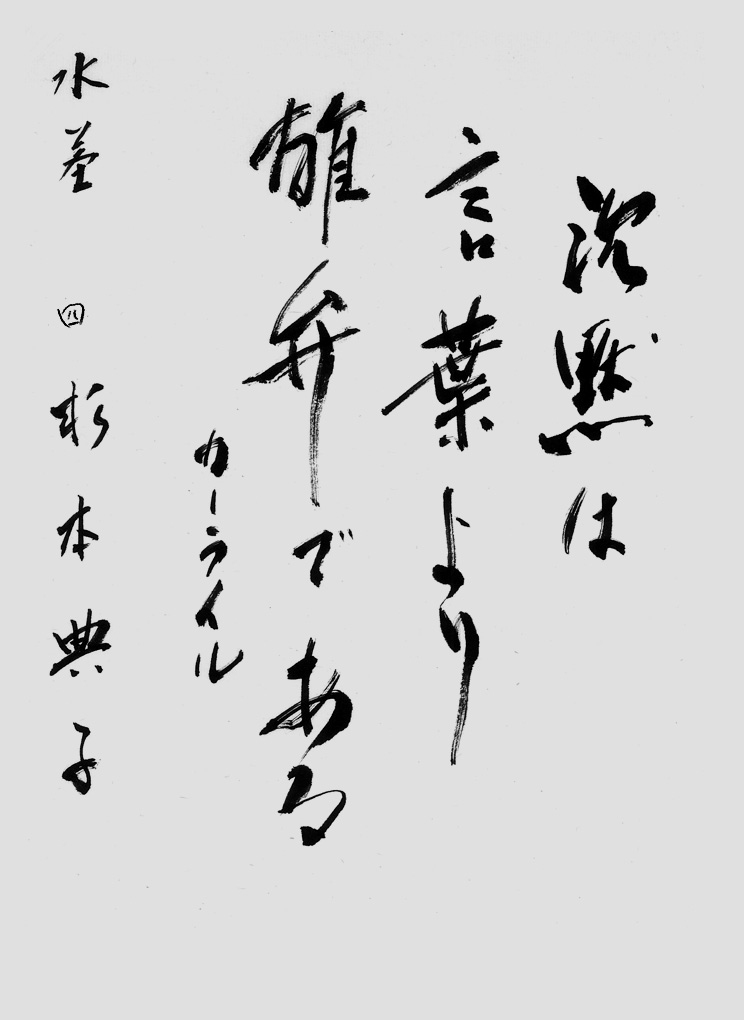 沈黙は
言葉より
雄弁である
カーライル
水莖 杉本典子